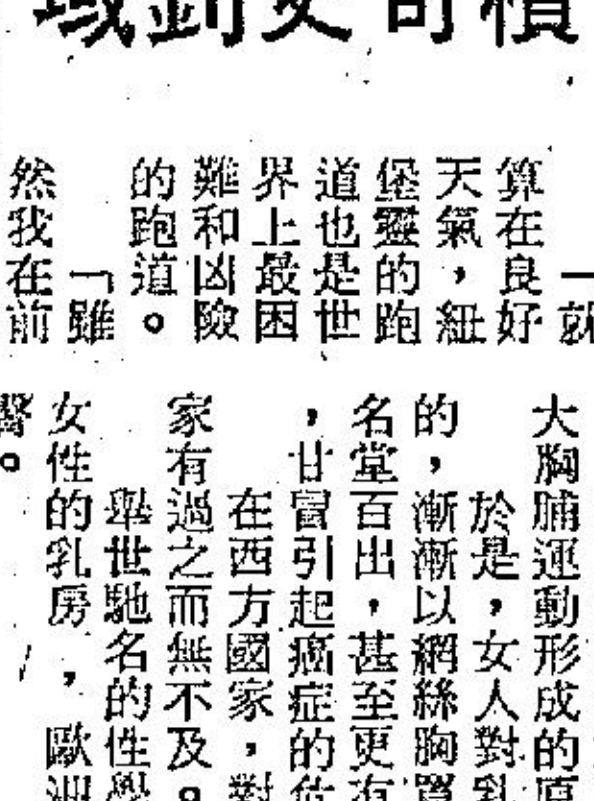 「就
算在良好
天氣，紐
堡靈的跑
道也是世
界上最困
難和凶險
的跑道。
「雖
然我在前
大胸脯運動形成的
於是，女人對乳
的，漸漸以網絲胸罩
名堂百出，甚至更有
，甘冒引起癌症的危
在西方國家，對
家有過之而無不及。
舉世馳名的性學
女性的乳房，歐洲
。